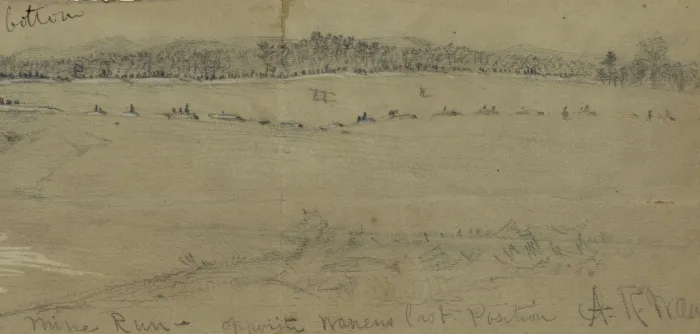 bottom
Mine Run - opposite Warens last Position A. R. Wau